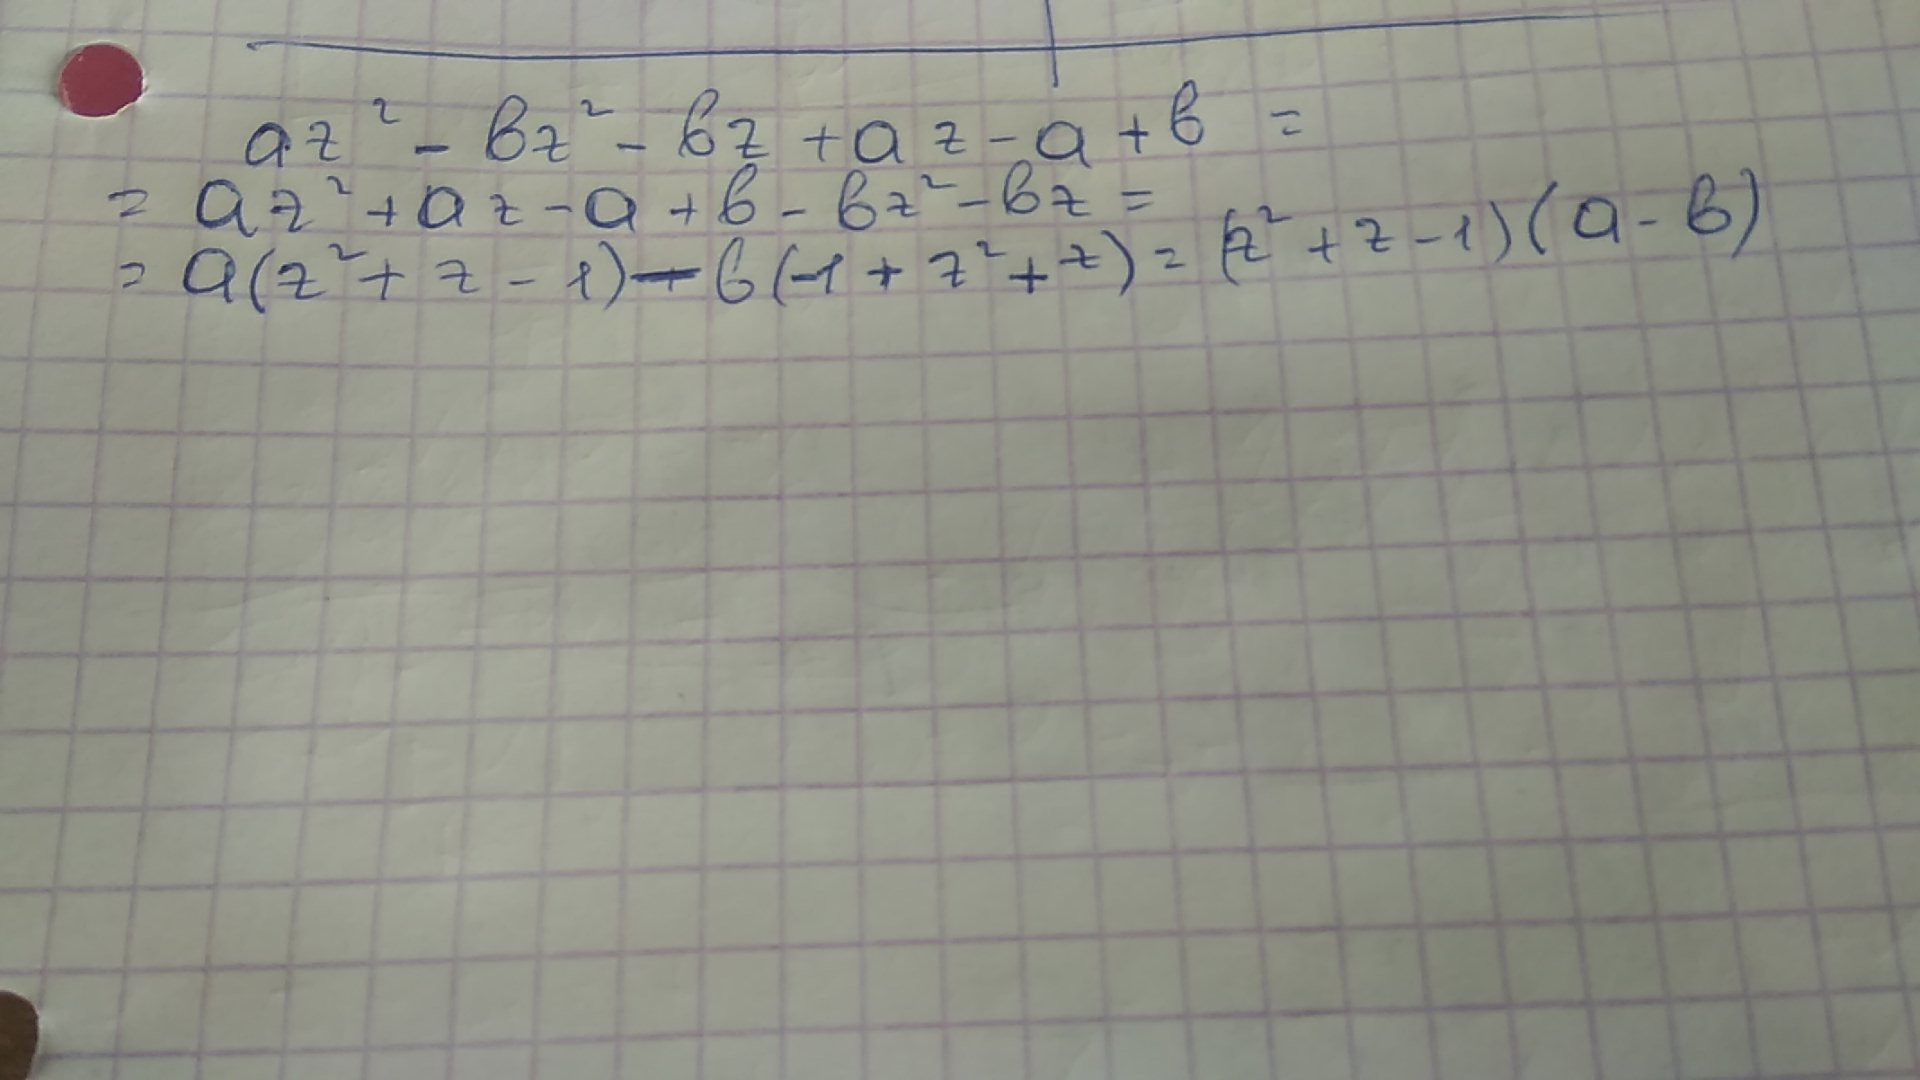 az² - bz² - bz + az - a + b =
= az² + az - a + b - bz² - bz =
= a(z² + z - 1) - b(-1 + z² + z) = (z² + z - 1)(a - b)